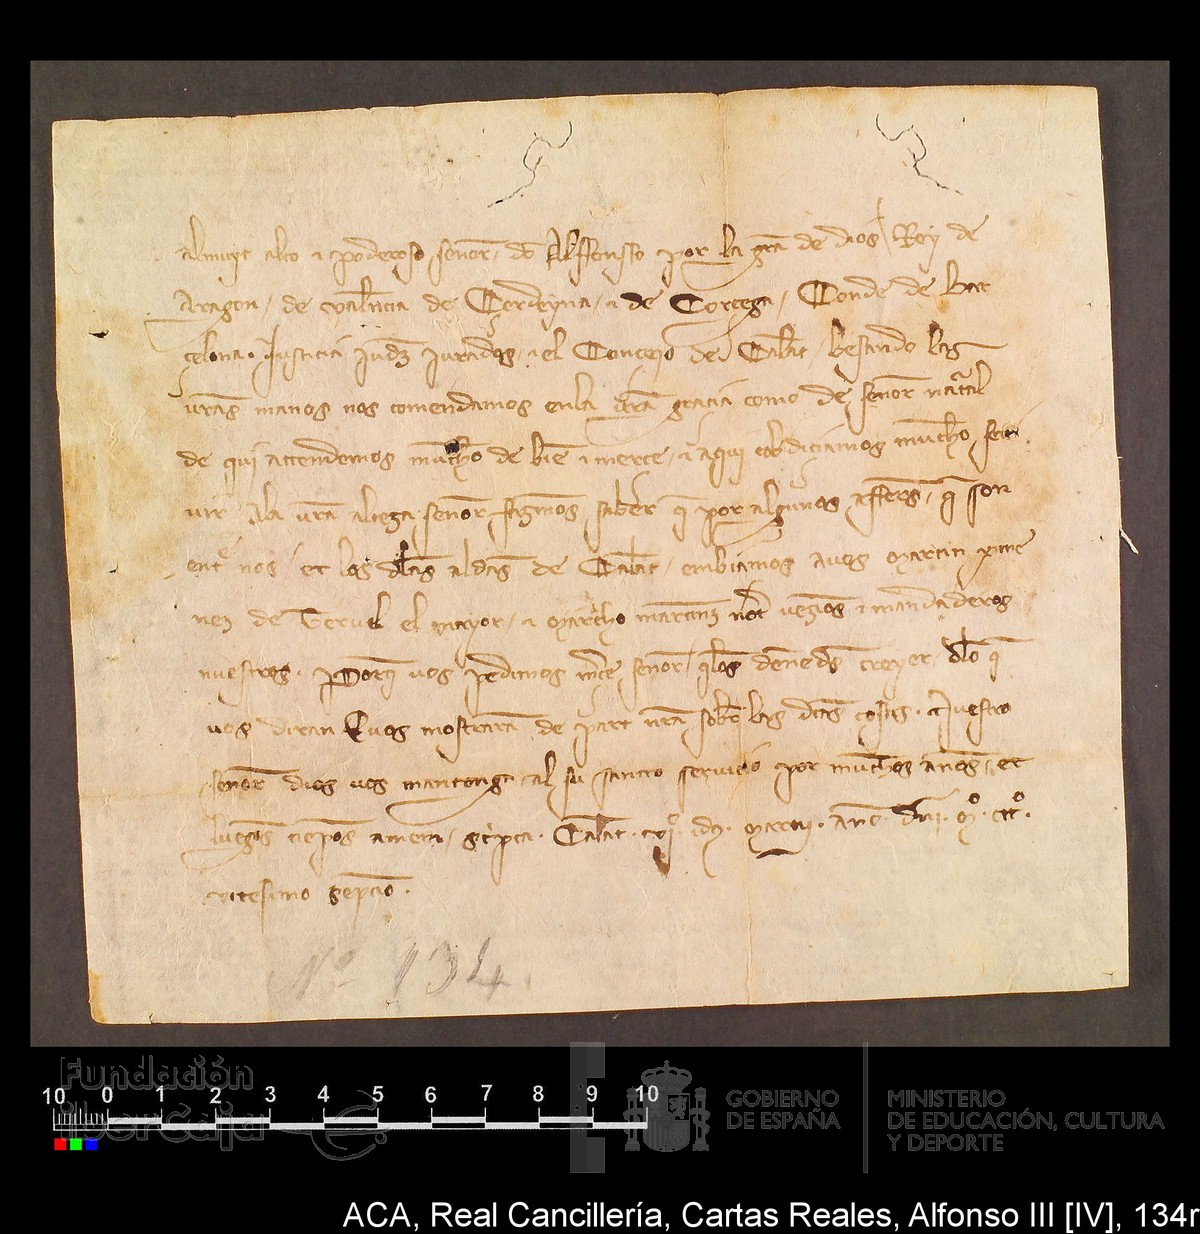 Al muyt alto ⁊ poderoso senor do Alffonsso por la gra de dios Rey de
Aragon / de valncia de Cerdeyna / ⁊ de Corcega / Conde de Bar
celona. Justicia Judz Jurados / ⁊ el Concejo de Calat / besando las
vras manos nos comendamos en la vra gracia como de senor natal
de qui attendemos mucho de bie ⁊ merce / ⁊ a qui cobdiciamos mucho ser
uir A la vra altega senor fagmos saber q por algunos affers / q son
entre nos et los dlas aldas de Calat / embiamos a vos Martin xime
nez de Teruel el mayor / ⁊ Martho martinz not vezios ⁊ mandaderos
nuestros. Porq vos pedimos mce senor / qlos denneds creyer dlo q
vos diran ⁊ vos mostrara de part nra sobre las dtas cosas. Nuestro
senor dios vos mantenga al su sancto seruicio por muchos anos / et
luegos tiepos amen / scipta. Calat. idz. marcij. ano. dni. Mº. cccº.
vicesimo septio.
Nº 134.
Fundación
iberCaja
10 0 1 2 3 4 5 6 7 8 9 10
GOBIERNO
DE ESPAÑA
MINISTERIO
DE EDUCACIÓN, CULTURA
Y DEPORTE
ACA, Real Cancillería, Cartas Reales, Alfonso III [IV], 134r